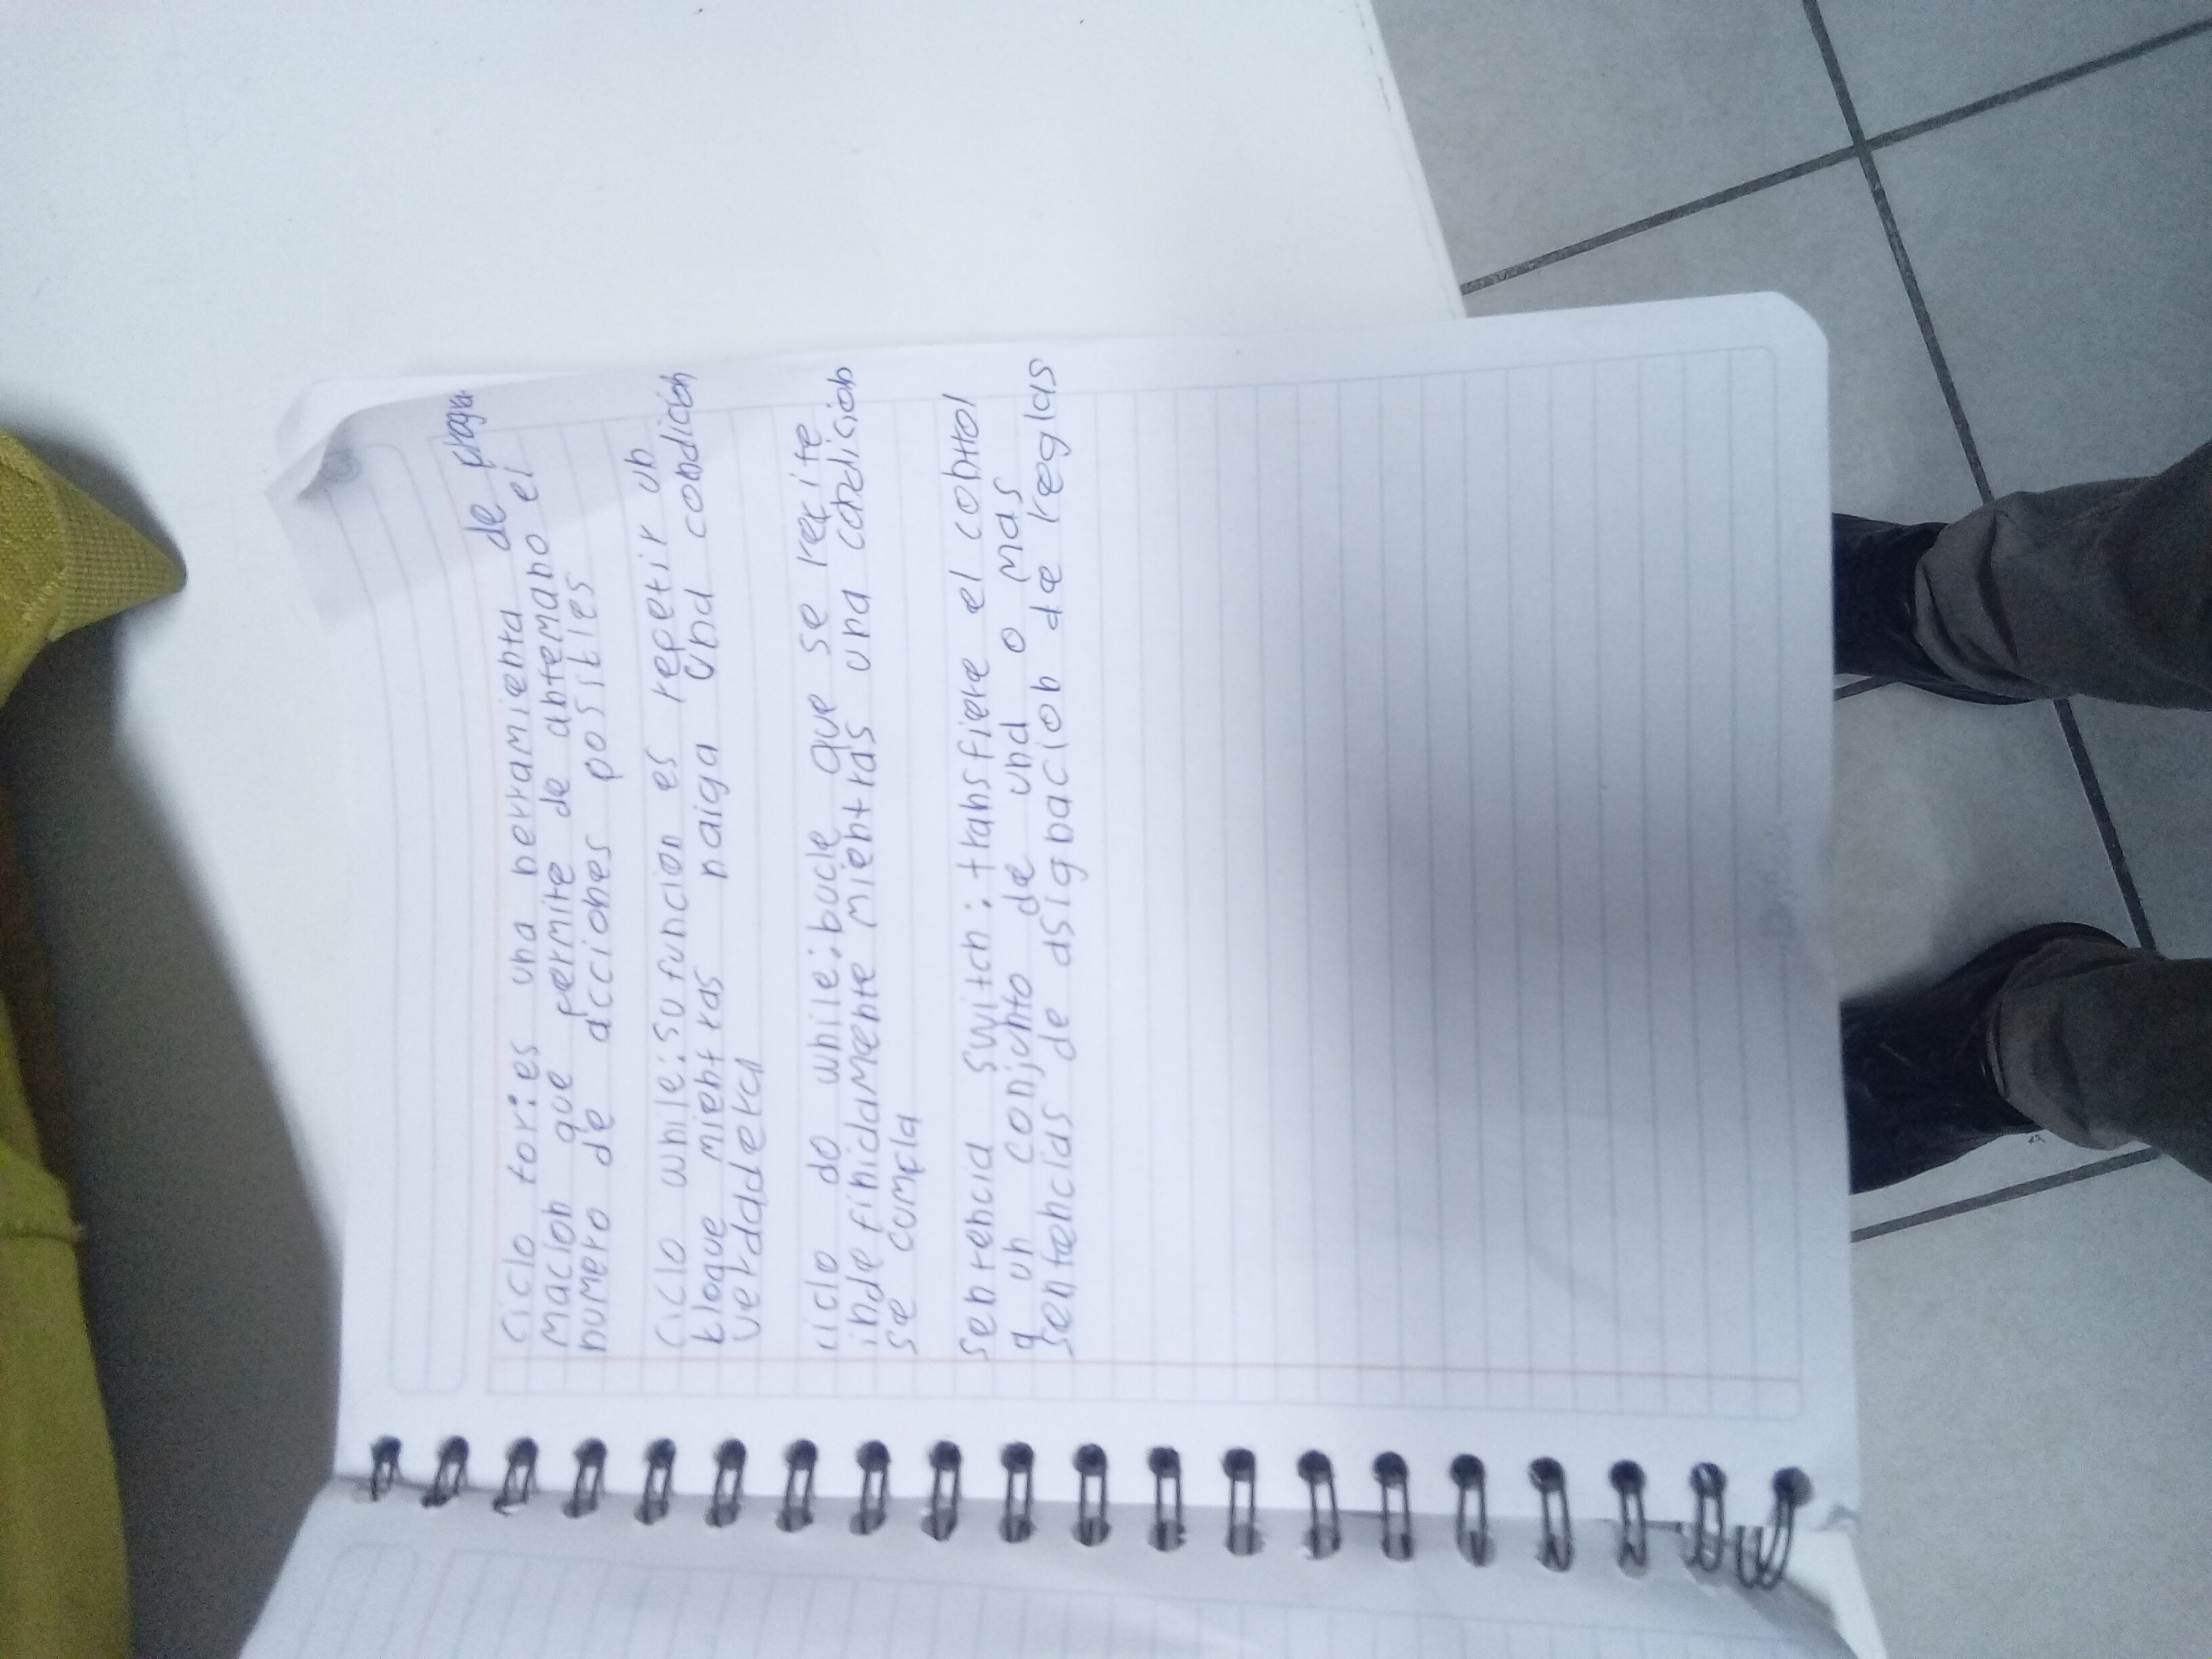 Ciclo for: es una herramienta de progra
macion que permite de antemano el
numero de acciones posibles
Ciclo while: su funcion es repetir un
bloque mientras haiga una condición
verdadera
ciclo do while: bucle que se recite
indefinidamente mientras una condicion
se cumpla
sentencia switch: transfiere el control
a un conjunto de una o mas
sentencias de asignacion de reglas